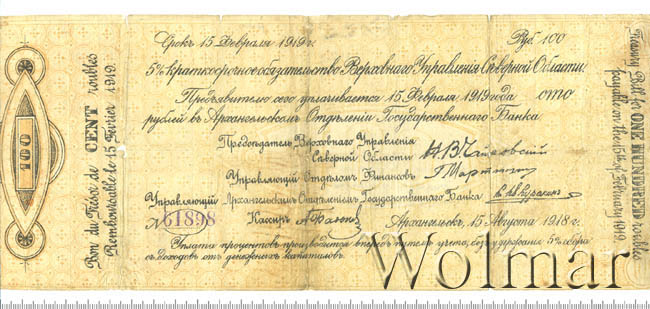 Срокъ 15 Февраля 1919 г. Руб. 100
5% Краткосрочное обязательство Верховнаго Управленія Сѣверной Области.
Предъявителю сего уплачивается 15 Февраля 1919 года сто
рублей въ Архангельскомъ Отдѣленіи Государственнаго Банка
Предсѣдатель Верховнаго Управленія
Сѣверной Области Н.В. Чайковскій
Управляющій Отдѣломъ Финансовъ
Управляющій Архангельскимъ Отдѣленіемъ Государственнаго Банка
№ 61898 Кассиръ
Архангельскъ, 15 Августа 1918 г.
Уплата процентовъ производится впередъ путемъ учета, безъ удержанія 5% сбора
съ доходовъ отъ денежныхъ капиталовъ.
100
Bon du Trésor de CENT roubles
Remboursable le 15 Février 1919.
Treasury Bill for ONE HUNDRED roubles
payable on the 15th of February 1919.
Wolmar